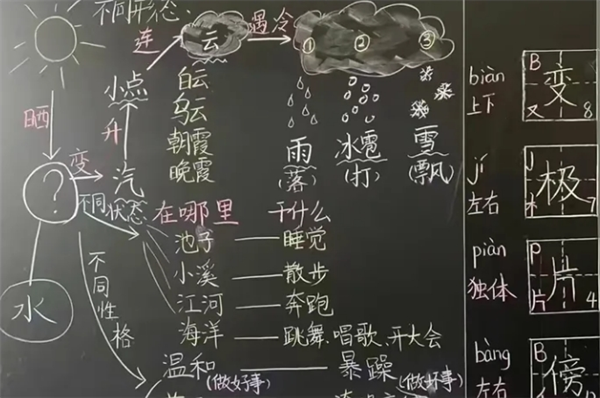 不同形态.
晒
?
水
变
汽
升
小点
连
云
遇冷
① ② ③
白云
乌云
朝霞
晚霞
雨 冰雹 雪
(落) (打) (飘)
不同状态
在哪里 干什么
池子——睡觉
小溪——散步
江河——奔跑
海洋——跳舞、唱歌、开大会
不同性格
温和 暴躁
(做好事) (做坏事)
biàn
上下
B
变
又 8
jí
左右
J
极
木 7
piàn
独体
P
片
片 4
bàng
左右
B
傍